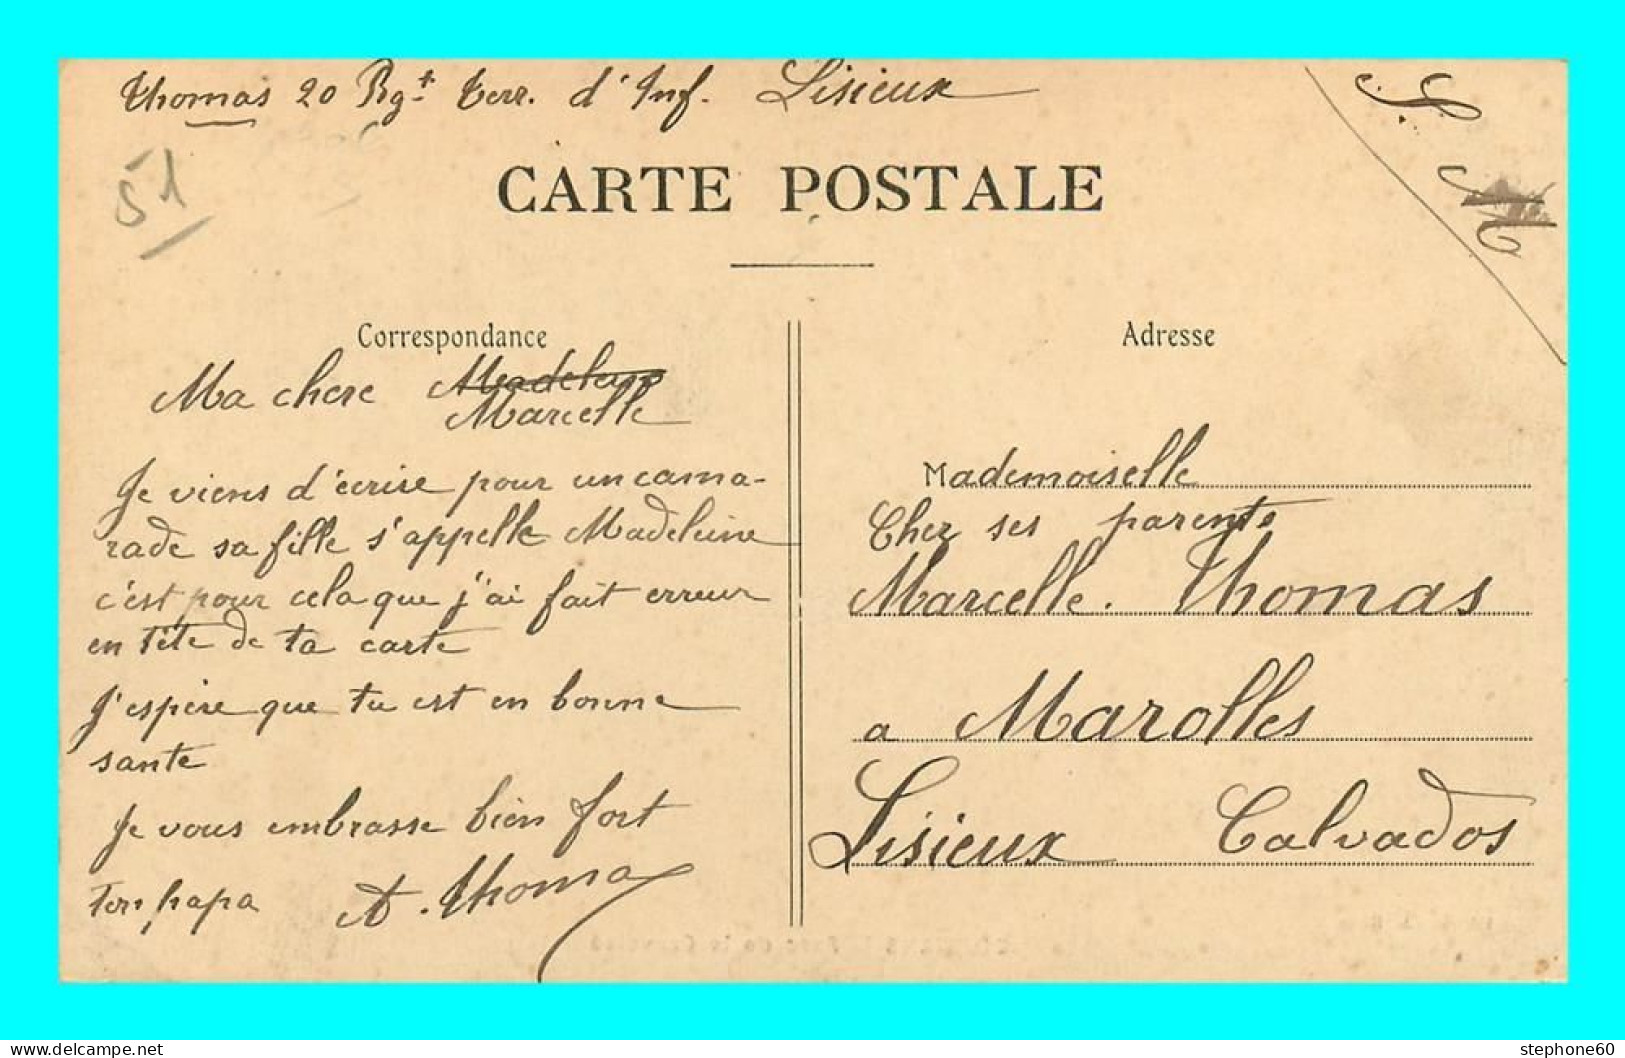 Thomas 20 Rgt Terr. d'Inf. Lisieux
S. M
51
CARTE POSTALE
Correspondance
Ma chere Madeleine
Marcelle
Je viens d'écrire pour un cama-
rade sa fille s'appelle Madeleine
c'est pour cela que j'ai fait erreur
en tête de ta carte
J'espère que tu est en bonne
sante
Je vous embrasse bien fort
Ton papa A. Thomas
Adresse
Mademoiselle
Chez ses parents
Marcelle. Thomas
a Marolles
Lisieux Calvados
www.delcampe.net
stephone60